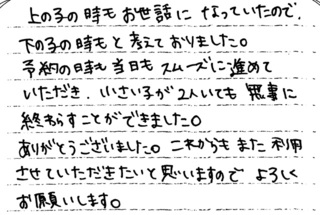 上の子の時もお世話になっていたので、
下の子の時もと考えておりました。
予約の時も当日もスムーズに進めて
いただき、小さい子が2人いても無事に
終わらすことができました。
ありがとうございました。これからもまた利用
させていただきたいと思いますのでよろしく
お願いします。